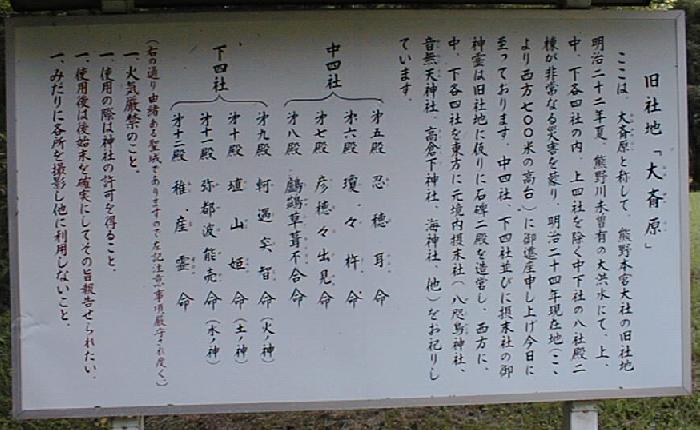 旧社地「大斎原」
ここは、大斎原と称して、熊野本宮大社の旧社地
明治二十二年夏、熊野川未曽有の大洪水にて、上、
中、下各四社の内、上四社を除く中下社の八社殿二
棟が非常なる災害を蒙り、明治二十四年現在地(ここ
より西方七〇〇米の高台)に御遷座申し上げ今日に
至っております。中四社、下四社並びに摂末社の御
神霊は旧社地に仮りに石碑二殿を造営し、西方に、
中、下各四社を東方に元境内摂末社(八咫烏神社、
音無天神社、高倉下神社、海神社、他)をお祀りし
ています。
中四社
第五殿 忍穂耳命
第六殿 瓊々杵命
第七殿 彦穂々出見命
第八殿 鸕鶿草葺不合命
下四社
第九殿 軻遇突智命(火ノ神)
第十殿 埴山姫命(土ノ神)
第十一殿 弥都波能売命(水ノ神)
第十二殿 稚産霊命
(右の通り由緒ある聖域でありますので左記注意事項厳守され度く)
一、火気厳禁のこと。
一、使用の際は神社の許可を得ること。
一、使用後は後始末を確実にしてその旨報告せられたい。
一、みだりに各所を撮影し他に利用しないこと。